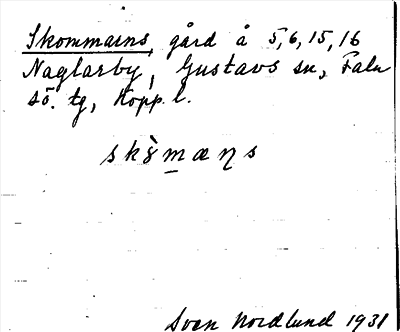 Skommarns, gård å 5,6,15,16
Naglarby, Gustavs sn, Falu
sö. tg, Kopp. l.
Sven Nordlund 1931